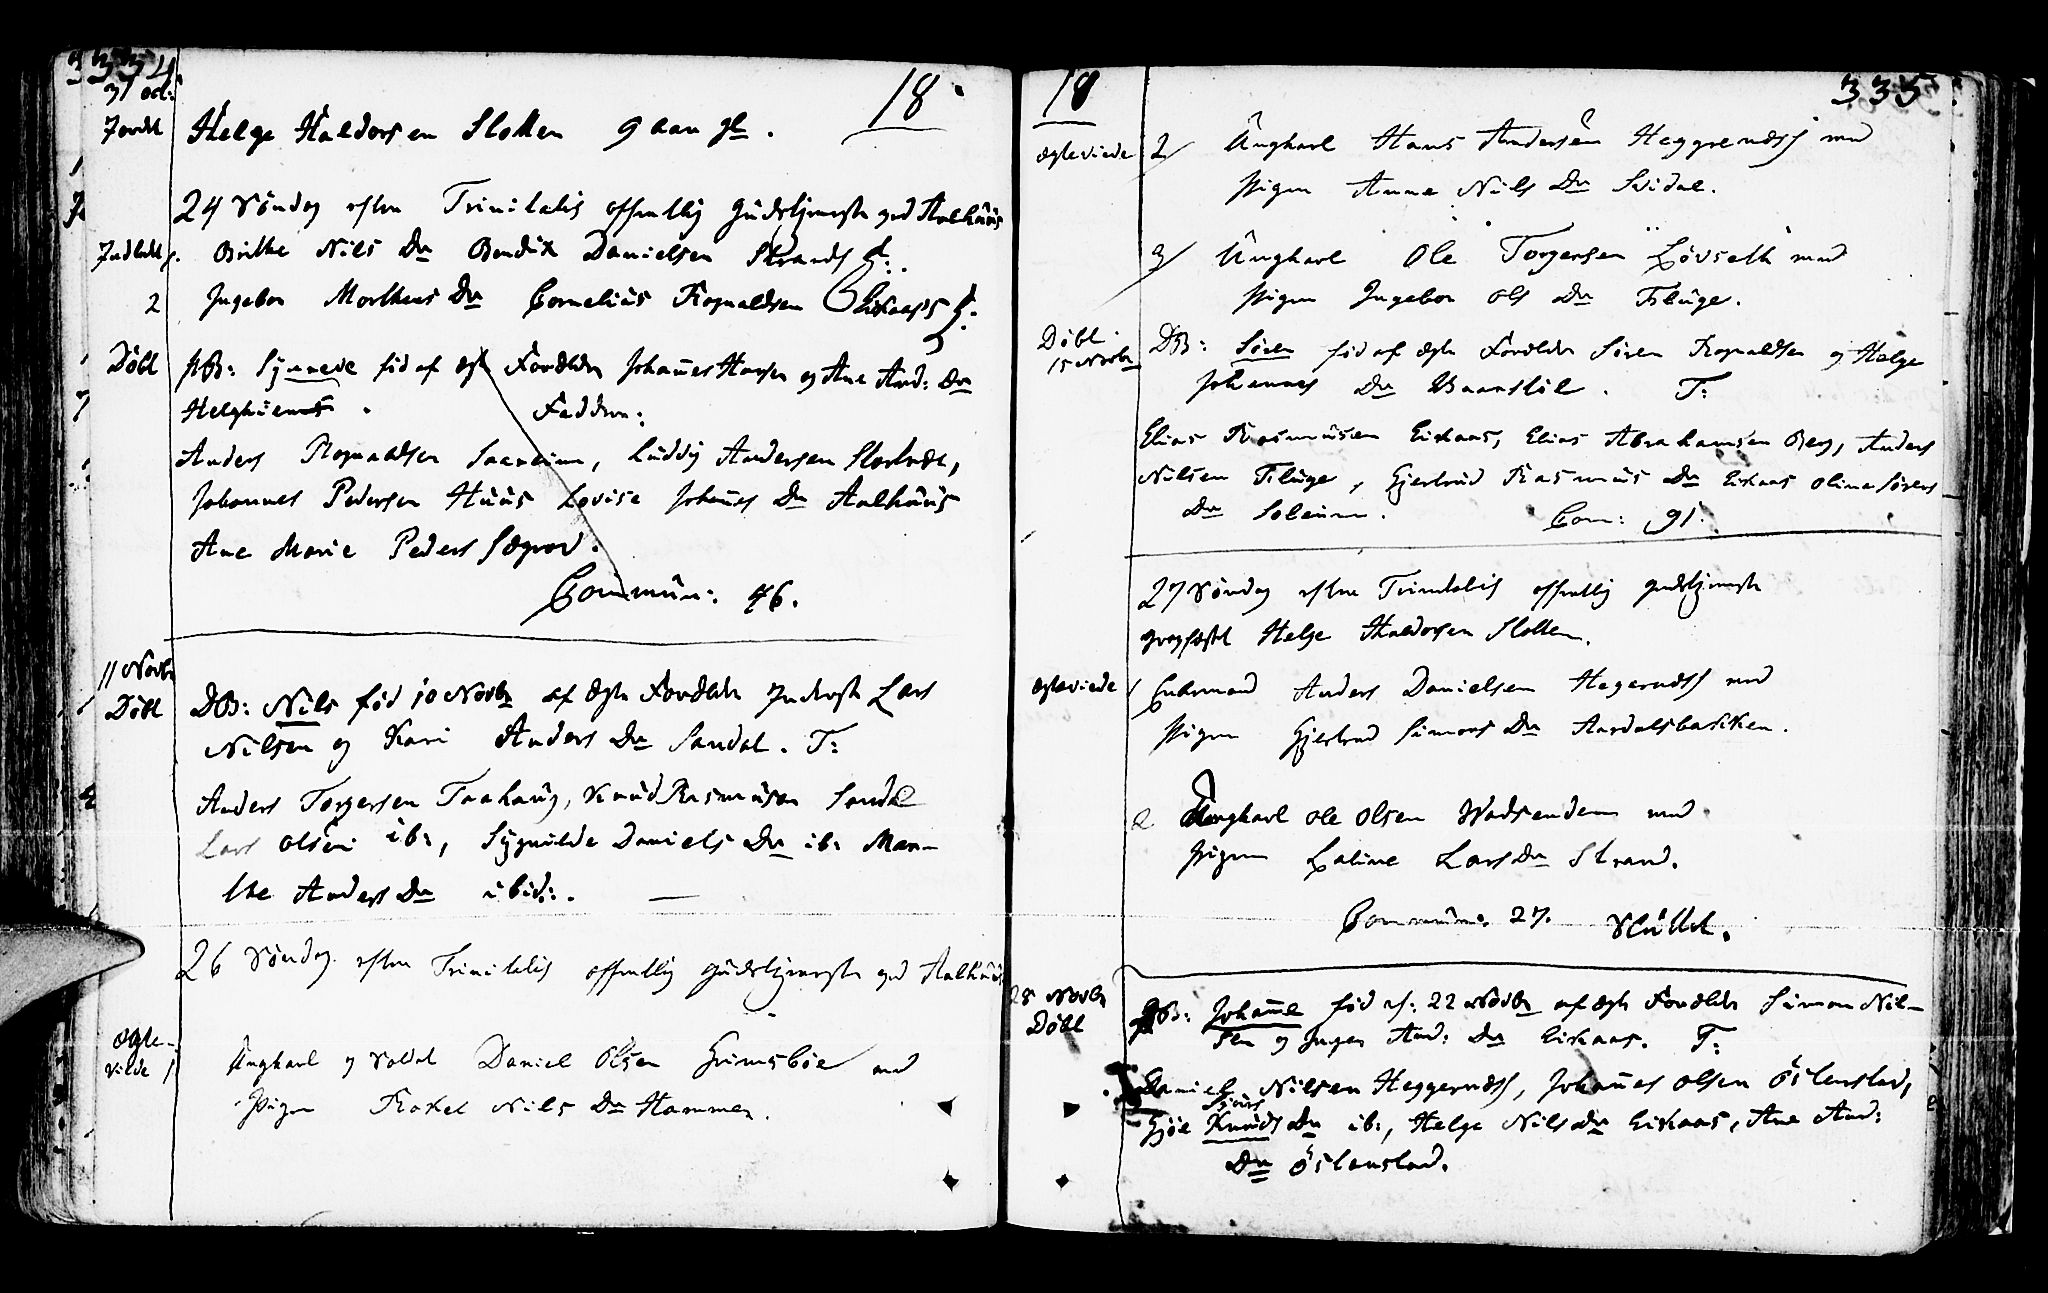 334
31 Oct:
18
Jordet Helge Haldorsen Slotten 9 aar gl.
24 Søndag efter Trinitatis offentlig Gudstjeneste ved Aalhuus
Indledt Brithe Nils Dr Bendix Danielsen Strands
2 Ingebor Morthens Dr Cornelius Rognaldsen Eikaas
Døbt PB: Synneve fød af Egte Forældre Johannes Hansen og Ane And: Dr
Helghiems. Faddere:
Anders Rognaldsen Solheim, Luddy Andersen
Johannes Pedersen Huus Lovise Johannes Dr Aalhuus
Ane Marie Peders Søgnord.
Commun: 46.
11 Novbr
Døbt DB: Nils fød 10 Novbr af Egte Forældre Inderste Lars
Nilsen og Kari Anders Dr Sandal. T:
Anders Torgersen Taahaug, Knud Rasmusen Sandal
Lars Olsen ib:, Sygnilde Daniels Dr ib: Mar-
the Anders Dr ibid:.
26 Søndag efter Trinitatis offentlig Gudstjeneste ved Aalhuus
Ægte-
viede 1 Ungkarl og Soldat Daniel Olsen Grimsbøe med
Pigen Rakel Nils Dr Hammer.
18
335
Ægteviede 2/ Ungkarl Hans Andersen Heggrends med
Pigen Anne Nils Dr Svidal.
3/ Ungkarl Ole Torgersen Løvseth med
Pigen Ingebor Ols Dr Fluge.
Døbt
15 Novbr DB: Søren fød af Egte Forældre Søren Rognaldsen og Helge
Johannes Dr Baarstøl. T:
Elias Rasmusen Eikaas, Elias Abrahamsen Berg, Anders
Nilsen Fluge, Gjertrud Rasmus Dr Eikaas Oline Sørens
Dr Soleim. Com: 91.
27 Søndag efter Trinitatis offentlig Gudstjeneste
Helge Haldorsen Slotten.
Ægteviede 1 Enkemand Anders Danielsen Hegerends med
Pigen Gjertrud Simons Dr Aardalsbakken.
2 Ungkarl Ole Olsen Wadsenden med
Pigen Laline Lars Dr Strand.
Commun: 27.
28 Novbr
Døbt PB: Johanne fød d: 22 Novbr af Egte Forældre Simon Nil-
sen og Inger And: Dr Eikaas. T:
Daniel Nilsen Heggerends, Johannes Olsen Østenstad,
Gjøe Knuds Dr ib:, Helge Nils Dr Eikaas, Ane And:
Dr Østenstad.